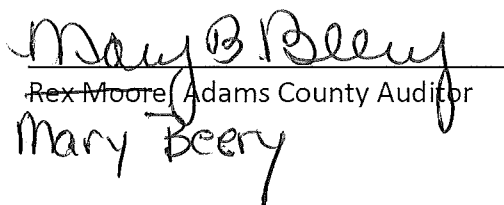 Mary B. Beery
Rex Moore, Adams County Auditor
Mary Beery